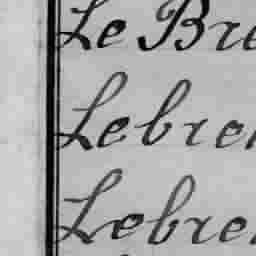 Le Bre
Lebre
Lebre